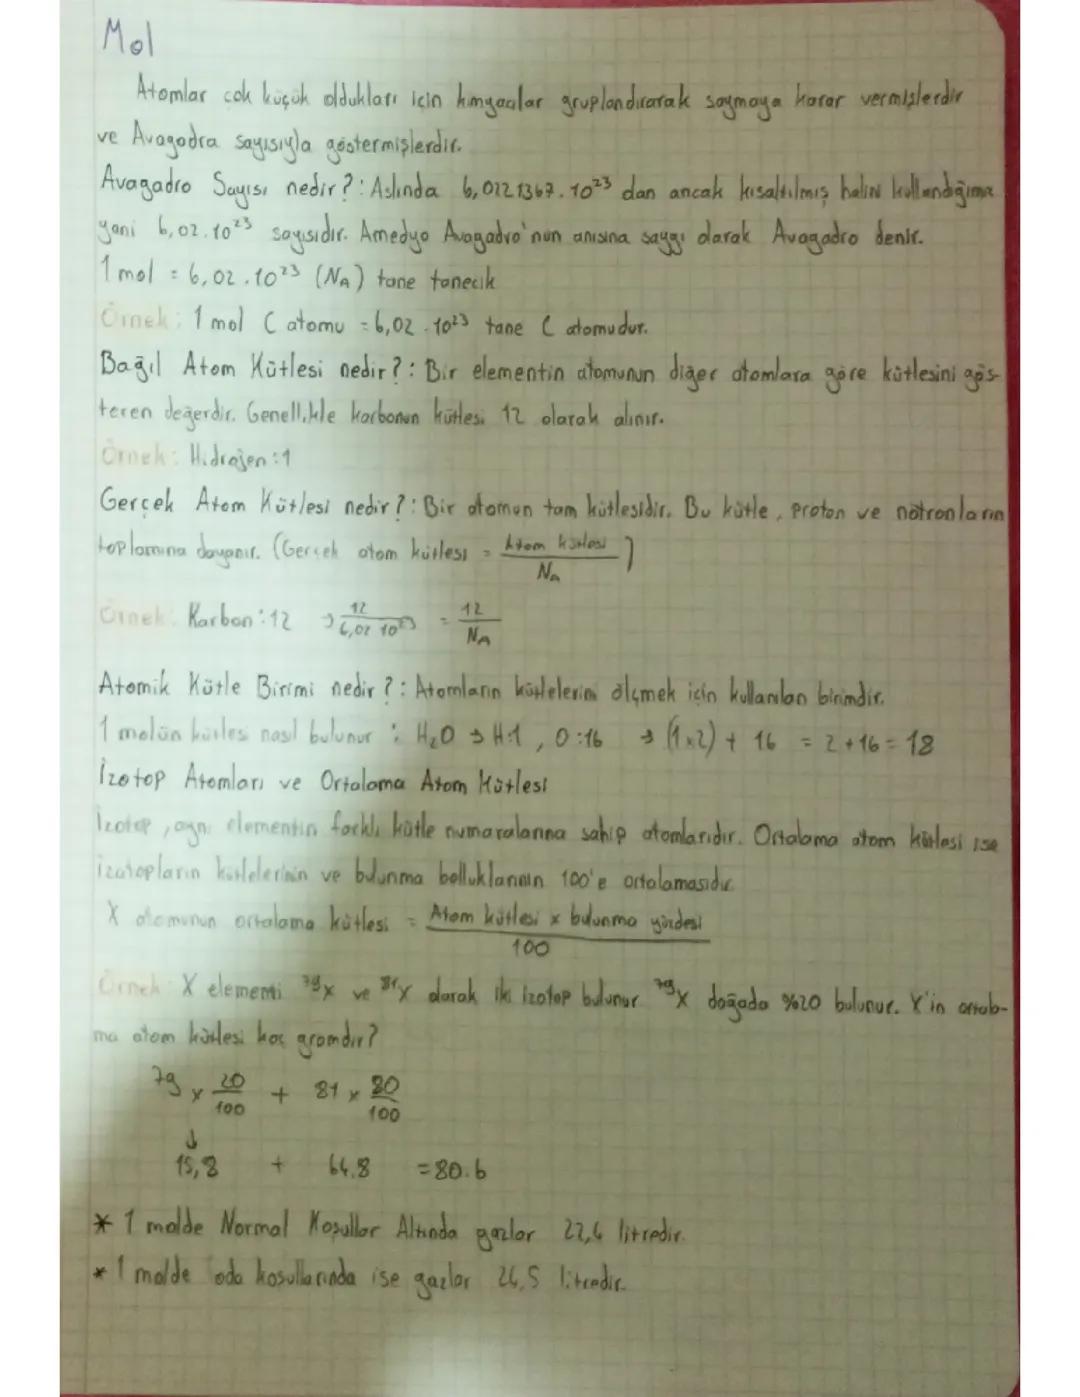 Mol
Atomlar cok küçük oldukları için kimyacılar gruplandırarak saymaya karar vermişlerdir
ve Avagodra sayısıyla göstermişlerdir.
Avagadro Sayısı nedir?: Aslında 6,0221367.10²³ dan ancak kısaltılmış halini kullandığımız
yani 6,02.10²³ sayısıdır. Amedyo Avagadro'nun anısına saygı olarak Avagadro denir.
1 mol = 6,02.10²³ (NA) tane tanecik
Örnek: 1 mol C atomu = 6,02.10²³ tane C atomudur.
Bağıl Atom Kütlesi nedir?: Bir elementin atomunun diğer atomlara göre kütlesini gös-
teren değerdir. Genellikle karbonun kütlesi 12 olarak alınır.
Örnek: Hidrojen:1
Gerçek Atom Kütlesi nedir?: Bir atomun tam kütlesidir. Bu kütle, proton ve nötronların
toplamına dayanır. (Gerçek atom kütlesi = Atom kütlesi / NA)
Örnek: Karbon:12 → 12/6,02 10²³ = 12/NA
Atomik Kütle Birimi nedir?: Atomların kütlelerini ölçmek için kullanılan birimdir.
1 molün kütlesi nasıl bulunur : H₂O → H:1, O:16 → (1x2) + 16 = 2+16 = 18
İzotop Atomları ve Ortalama Atom Kütlesi
İzotop, aynı elementin farklı kütle numaralarına sahip atomlarıdır. Ortalama atom kütlesi ise
izotopların kütlelerinin ve bulunma bolluklarının 100'e ortalamasıdır.
X atomunun ortalama kütlesi = Atom kütlesi x bulunma yüzdesi / 100
Örnek: X elementi ⁷⁹X ve ⁸¹X olarak iki izotop bulunur ⁷⁹X doğada %20 bulunur. X'in ortala-
ma atom kütlesi kaç gramdır?
79 x 20/100 + 81 x 80/100
↓
15,8 + 64.8 = 80.6
* 1 molde Normal Koşullar Altında gazlar 22,4 litredir.
* 1 molde oda kosullarında ise gazlar 24,5 litredir.